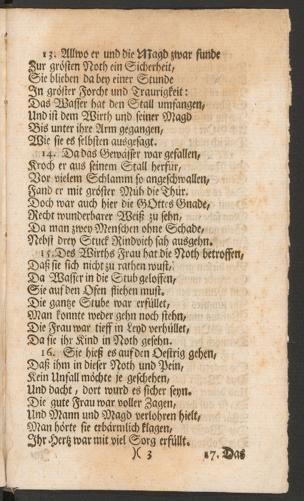 13. Allwo er und die Magd zwar funde
Zur grösten Noth ein Sicherheit,
Sie blieben da bey einer Stunde
In gröster Forcht und Traurigkeit:
Das Wasser hat den Stall umfangen,
Und ist dem Wirth und seiner Magd
Bis unter ihre Arm gegangen,
Wie sie es selbsten ausgesagt.
14. Da das Gewässer war gefallen,
Kroch er aus seinem Stall herfür,
Vor vielem Schlamm so angeschwallen,
Fand er mit gröster Müh die Thür.
Doch war auch hier die GOttes Gnade,
Recht wunderbarer Weiß zu sehn,
Da man zwey Menschen ohne Schade,
Nebst drey Stuck Rindvieh sah ausgehn.
15. Des Wirths Frau hat die Noth betroffen,
Daß sie sich nicht zu rathen wust,
Da Wasser in die Stub geloffen,
Sie auf den Ofen fliehen must.
Die gantze Stube war erfüllet,
Man konnte weder gehn noch stehn,
Die Frau war tieff in Leyd verhüllet,
Da sie ihr Kind in Noth gesehn.
16. Sie hieß es auf den Oestrig gehen,
Daß ihm in dieser Noth und Pein,
Kein Unfall möchte je geschehen,
Und dacht, dort wurd es sicher seyn.
Die gute Frau war voller Zagen,
Und Mann und Magd verlohren hielt,
Man hörte sie erbärmlich klagen,
Ihr Hertz war mit viel Sorg erfüllt.
)( 3 17. Das